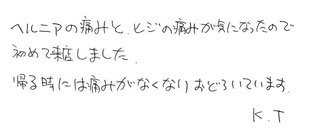 ヘルニアの痛みと、ヒジの痛みが気になったので
初めて来店しました.
帰る時には痛みがなくなりおどろいています.
K.T